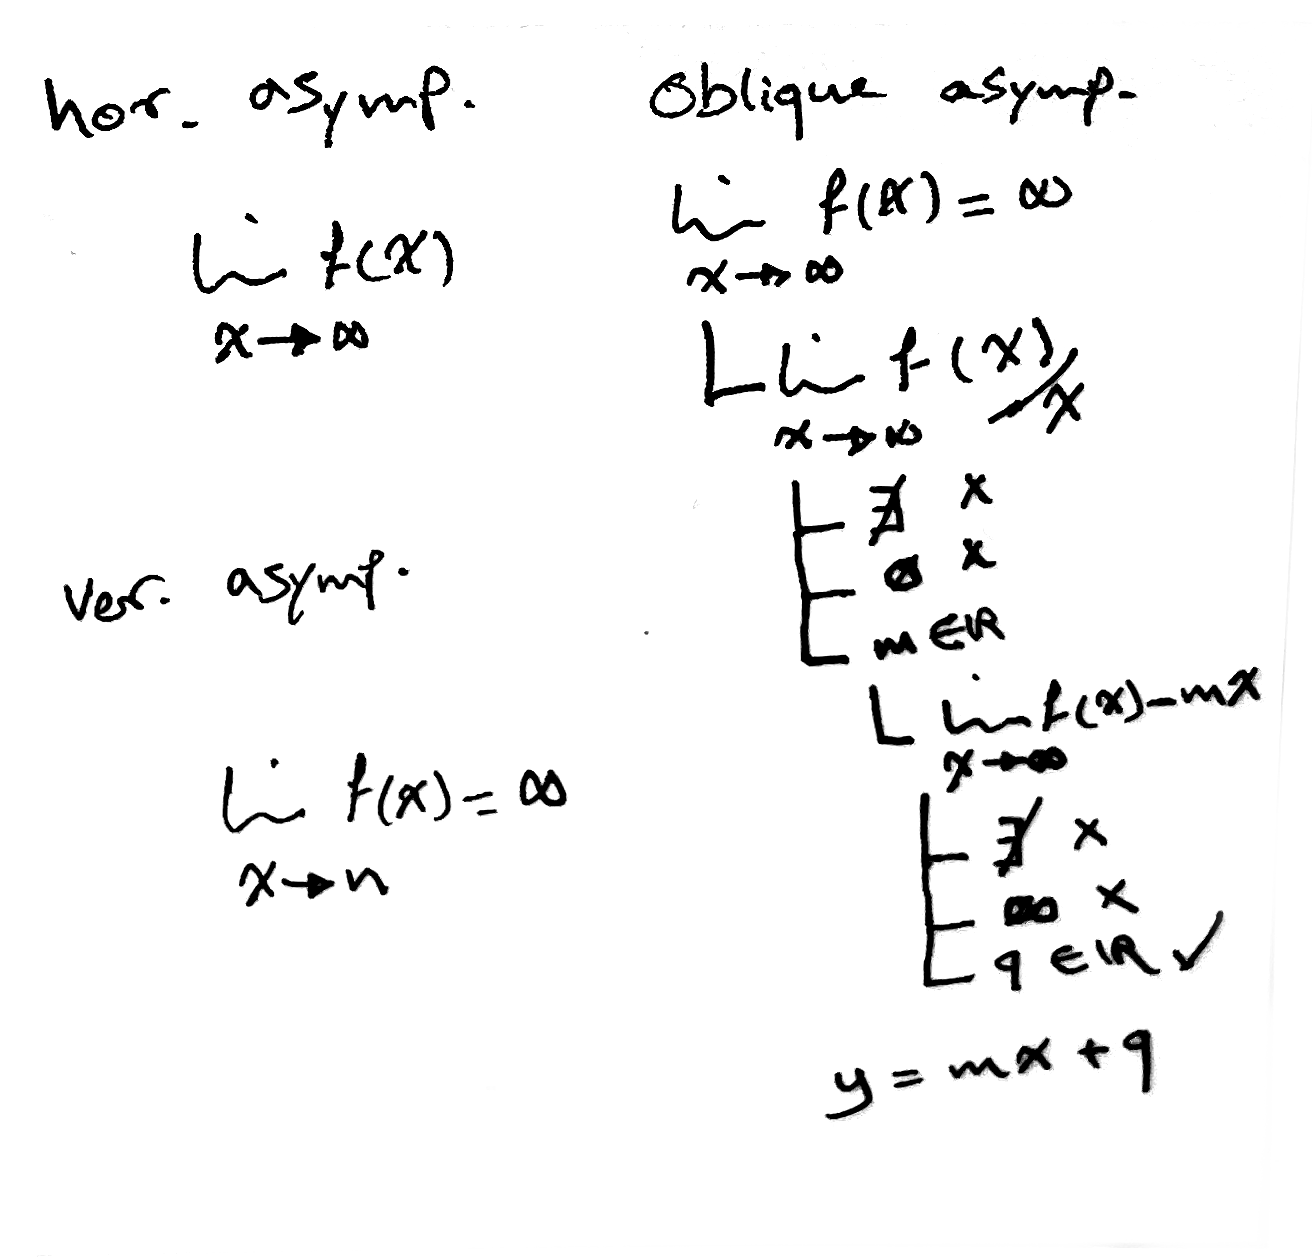 hor. asymp.
lim f(x)
x→∞
ver. asymp.
lim f(x) = ∞
x→n
Oblique asymp.
lim f(x) = ∞
x→∞
lim f(x)/x
x→∞
∄ x
x
m ∈ ℝ
lim f(x)-mx
x→∞
∄ x
∞ x
q ∈ ℝ ✓
y = mx + q